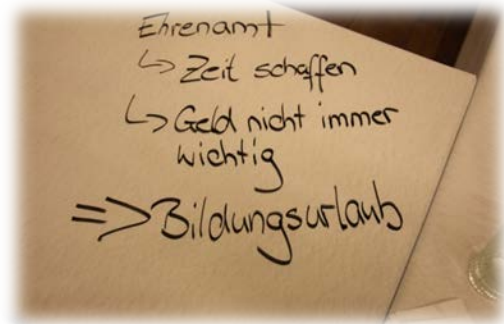 Ehrenamt
↳ Zeit schaffen
↳ Geld nicht immer
wichtig
=> Bildungsurlaub